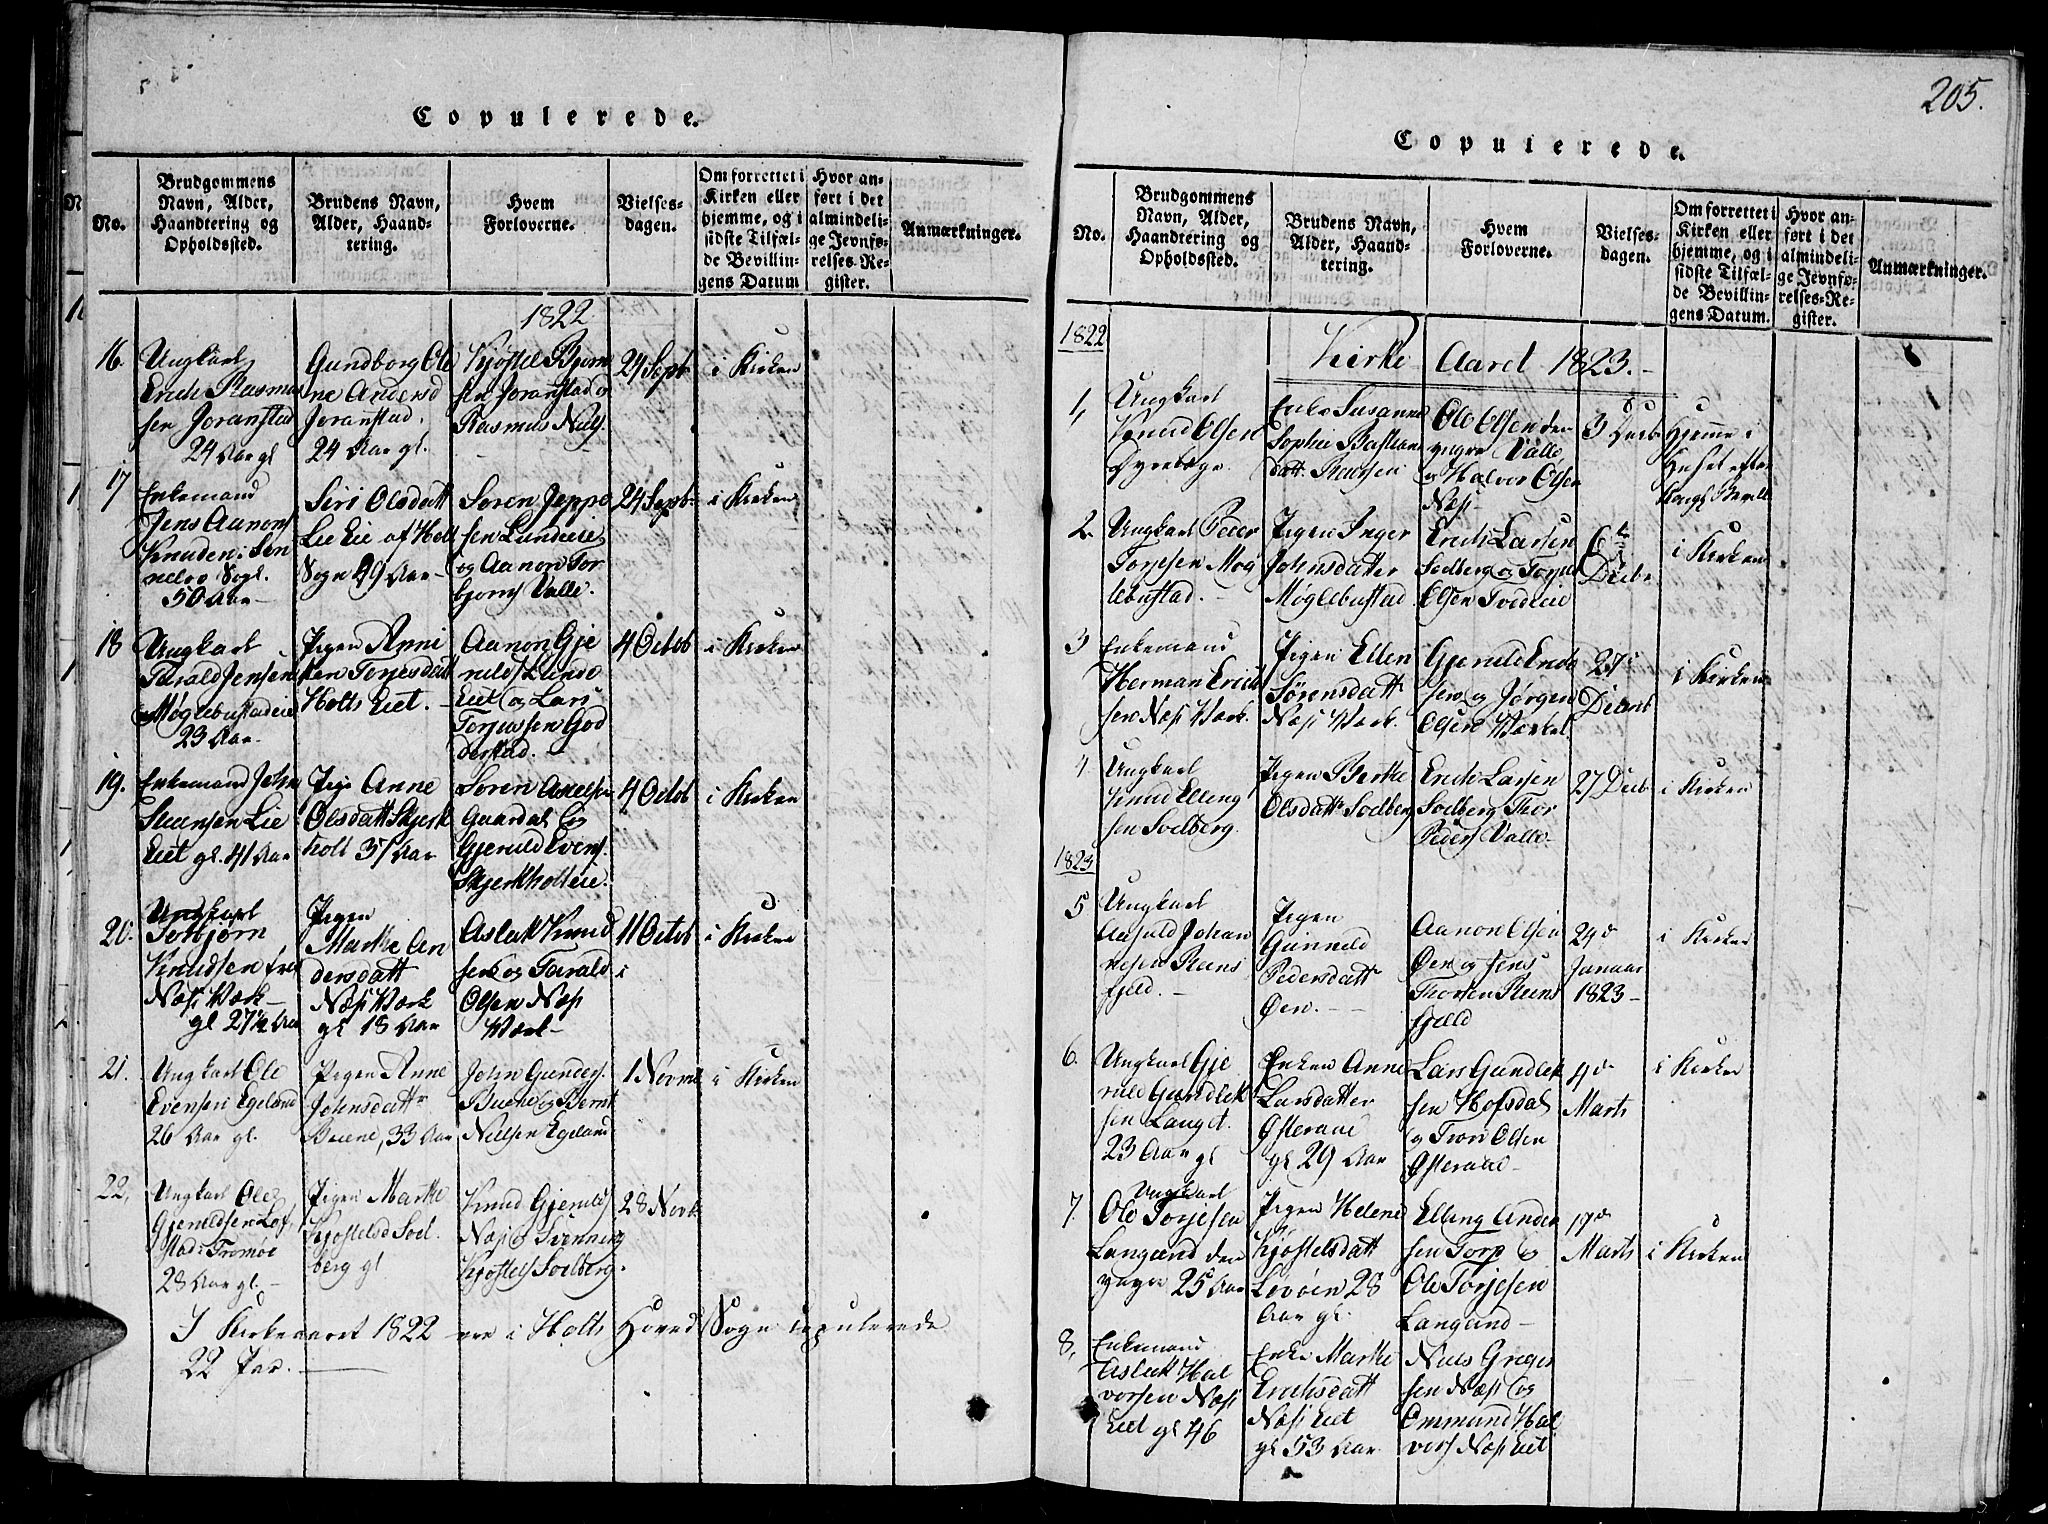 Copulerede.
No.
Brudgommens
Navn, Alder,
Haandtering og
Opholdssted.
Brudens Navn,
Alder, Haand-
tering.
Hvem
Forloverne.
Vielses-
dagen.
Om forrettet i
Kirken eller
hjemme, og i
sidste Tilfæl-
de Bevillin-
gens Datum
Hvor an-
ført i det
almindeli-
ge Jevnfø-
relses-Re-
gister.
Anmærkninger.
1822
16.
Ungkarl
Erich Rasmus
sen Joranstad
24 Aar gl
Gundborg Ole
ne Andersd
Joranstad,
24 Aar gl.
Kjøstel Bjorn
sen Joranstad og
Rasmus Niels.
24 Septbr
i Kirken
17
Enkemand
Jens Aanons
Knuden i Son
neløv Sogl.
50 Aar
Siri Olsdatt
Lie Eie af Holt
Sogn 29 Aar
Soren Jeppe
sen Lundeeie
og Aanon Tor
bjorns Valle.
24 Septbr
i Kirken
18
Ungkarl
Tarald Jensen
Møglebustadeie
23 Aar
Pigen Anne
Torjesdatt
Holts Eiet.
Aanon Gje
rulds Lunde
Eiet og Lars
Torjussen God
derstad.
4 Octob
i Kirken
19.
Enkemand John
Steensen Lie
Eiet gl. 41 Aar
Pige Anne
Olsdatt Skjerk
holt 37 Aar
Soren Axelsen
Gaardal og
Gjeruld Evens.
Skjerkholteie.
4 Octob
i Kirken
20.
Ungkarl
Torbjørn
Knudsen fra
Næs Værk
gl 27½ Aar
Pigen
Marthe An
dersdatt
Næs Værk
gl 18 Aar
Aslak Knud
sen og Tarald
Olsen Næs
Værk
11 Octob
i Kirken
21.
Ungkarl Ole
Evensen Egeland
26 Aar gl.
Pigen Anne
Johnsdattr
Beiene, 33 Aar
John Gunders.
Buene og Bernt
Nielsen Egeland
1 Novmb
i Kirken
22,
Ungkarl Ole
Gjeruldsen Lof
stad i Tromøe
28 Aar gl.
Pigen Marthe
Kjøstelsd Soel
berg gl
Knud Gjerulds
Næs og Svennung
Kjøstels Soelberg.
28 Novb
I Kirkeaaret 1822 ere i Holts Hoved Sogn copulerede
22 Par.
205.
Copulerede.
No.
Brudgommens
Navn, Alder,
Haandtering og
Opholdssted.
Brudens Navn,
Alder, Haand-
tering.
Hvem
Forloverne.
Vielses-
dagen.
Om forrettet i
Kirken eller
hjemme, og i
sidste Tilfæl-
de Bevillin-
gens Datum.
Hvor an-
ført i det
almindeli-
ge Jevnfø-
relses-Re-
gister.
Anmærkninger.
1822
Kirke Aaret 1823.
1,
Ungkarl
Knud Olsen
Dyrebæge
Enke Susanne
Sophie Bastian
datt. Knusen
Ole Olsen den
yngre Valle
og Halvor Olsen
Næs
3 Decb
Hjemme i
Huset efter
kongl Bevill
2.
Ungkarl Peder
Torjesen Møg
lebustad.
Pigen Inger
Johnsdatter
Møglebustad
Erich Larsen
Soelberg og Torjus
Olsen Tvedteie
6te
Decbr
i Kirken
3
Enkemand
Herman Erich
sen Næs Værk.
Pigen Ellen
Sörensdattr
Næs Værk.
Gjeruld Ends
sen og Jørgen
Olsen Værket
27de
Decmb
i Kirken
4
Ungkarl
Knud Elling
sen Soelberg.
Pigen Berthe
Olsdattr Soelberg
Erich Larsen
Soelberg Thor
Peders Valle
27 Decb
i Kirken
1823
5
Ungkarl
Aasuld Johan
nesen Reens
fjeld.
Pigen
Gunneld
Pedersdattr
Øen.
Aanon Olsen
Øen og Jens
Thorsen Reens
fjeld
29de
Januar
1823
i Kirken
6.
Ungkarl Gje
ruld Gundlek
sen Langet.
23 Aar gl
Enken Anne
Larsdatter
Østeraae
gl 29 Aar
Lars Gundlek
sen Hofsdal
og Tron Olsen
Østeraae
4de
Marts
i Kirken
7.
Ungkarl
Ole Torjesen
Langand den
yngre 25 Aar
Pigen Helene
Kjøstelsdatt
Lovøen 28
Aar gl.
Elling Ander
sen Torp og
Ole Torjesen
Langand
17de
Marts
i Kirken
8,
Enkemand
Aslak Hal
vorsen Næs
Eiet gl 46
Enke Marthe
Erichsdatt
Næs Eiet
gl 53 Aar
Niels Greger
sen Næs og
Emmund Hal
vors Næs Eiet